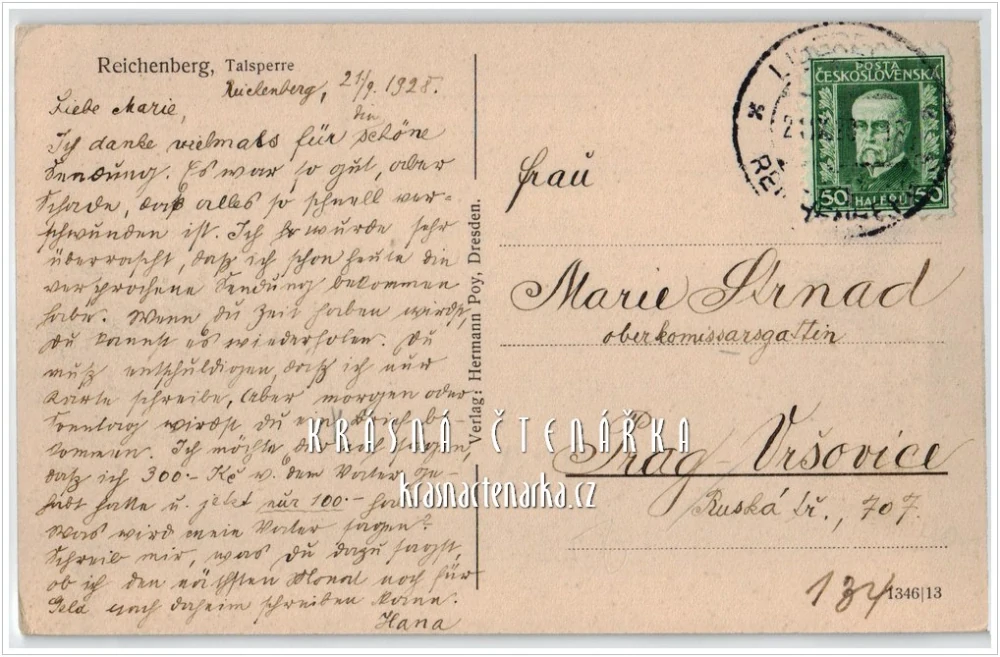 Reichenberg, Talsperre
Reichenberg, 21/9. 1928.
Liebe Marie,
die
Ich danke vielmals für schöne
Sendung. Es war so gut, aber
Schade, daß alles so schnell ver-
schwunden ist. Ich wurde sehr
überrascht, daß ich schon heute die
versprochene Sendung bekommen
habe. Wenn du Zeit haben wirdst,
Du kannst es wiederholen. Du
mußt entschuldigen, daß ich nur
Karte schreibe, aber morgen oder
Sonntag wirdst Du ein Brief be-
kommen. Ich möchte dir noch sagen,
daß ich 300.- Kč v. dem Vater ge-
habt habe u. jetzt nur 100.- ha
Was wird mein Vater sagen?
Schreib mir, was Du dazu sagst,
ob ich den nächsten Monat noch für
Geld nach daheim schreiben kann.
Hana
Verlag: Hermann Poy, Dresden.
POSTA
ČESKOSLOVENSKÁ
50 HALÉŘŮ 50
Frau
Marie Strnad
oberkomissarsgattin
Prag-Vršovice
Ruská tř., 707.
134
1346|13
KRÁSNÁ ČTENÁŘKA
krasnactenarka.cz